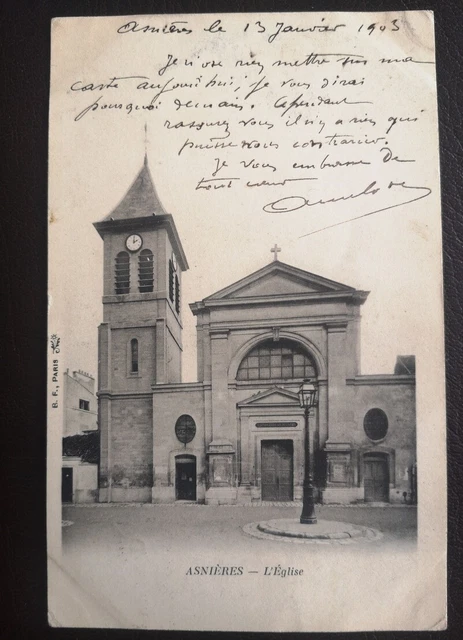 Asnières le 13 Janvier 1903
Je n'ose rien mettre sur ma
carte aujourd'hui, je vous dirai
pourquoi demain. Cependant
rassurez vous il n'y a rien qui
puisse vous contrarier.
Je vous embrasse de
tout cœur
B. F., PARIS
ASNIÈRES — L'Église